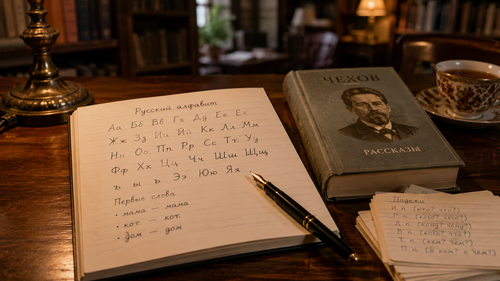 Русский алфавит
Аа Бб Вв Гг Дд Ее Ёё
Жж Зз Ии Йй Кк Лл Мм
Нн Оо Пп Рр Сс Тт Уу
Фф Хх Цц Чч Шш Щщ
ъ ы ь Ээ Юю Яя
Первые слова
• мама — мама
• кот — кот
• дом — дом
ЧЕХОВ
РАССКАЗЫ
Падежи
И. п. (кто? что?)
Р. п. (кого? чего?)
Д. п. (кому? чему?)
В. п. (кого? что?)
Т. п. (кем? чем?)
П. п. (о ком? о чём?)